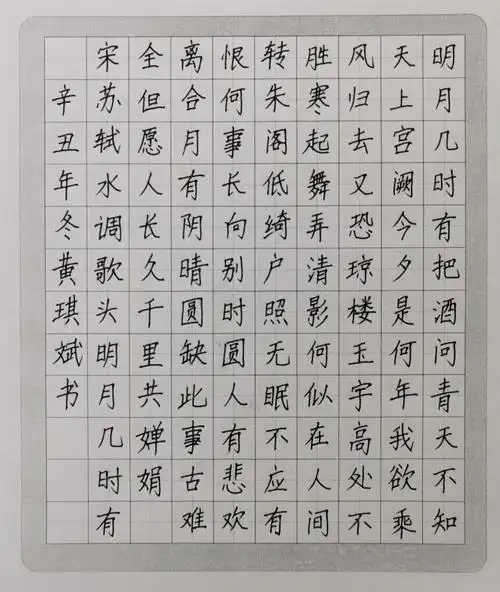 明月几时有把酒问青天不知
天上宫阙今夕是何年我欲乘
风归去又恐琼楼玉宇高处不
胜寒起舞弄清影何似在人间
转朱阁低绮户照无眠不应有
恨何事长向别时圆人有悲欢
离合月有阴晴圆缺此事古难
全但愿人长久千里共婵娟
宋苏轼水调歌头明月几时有
辛丑年冬黄琪斌书